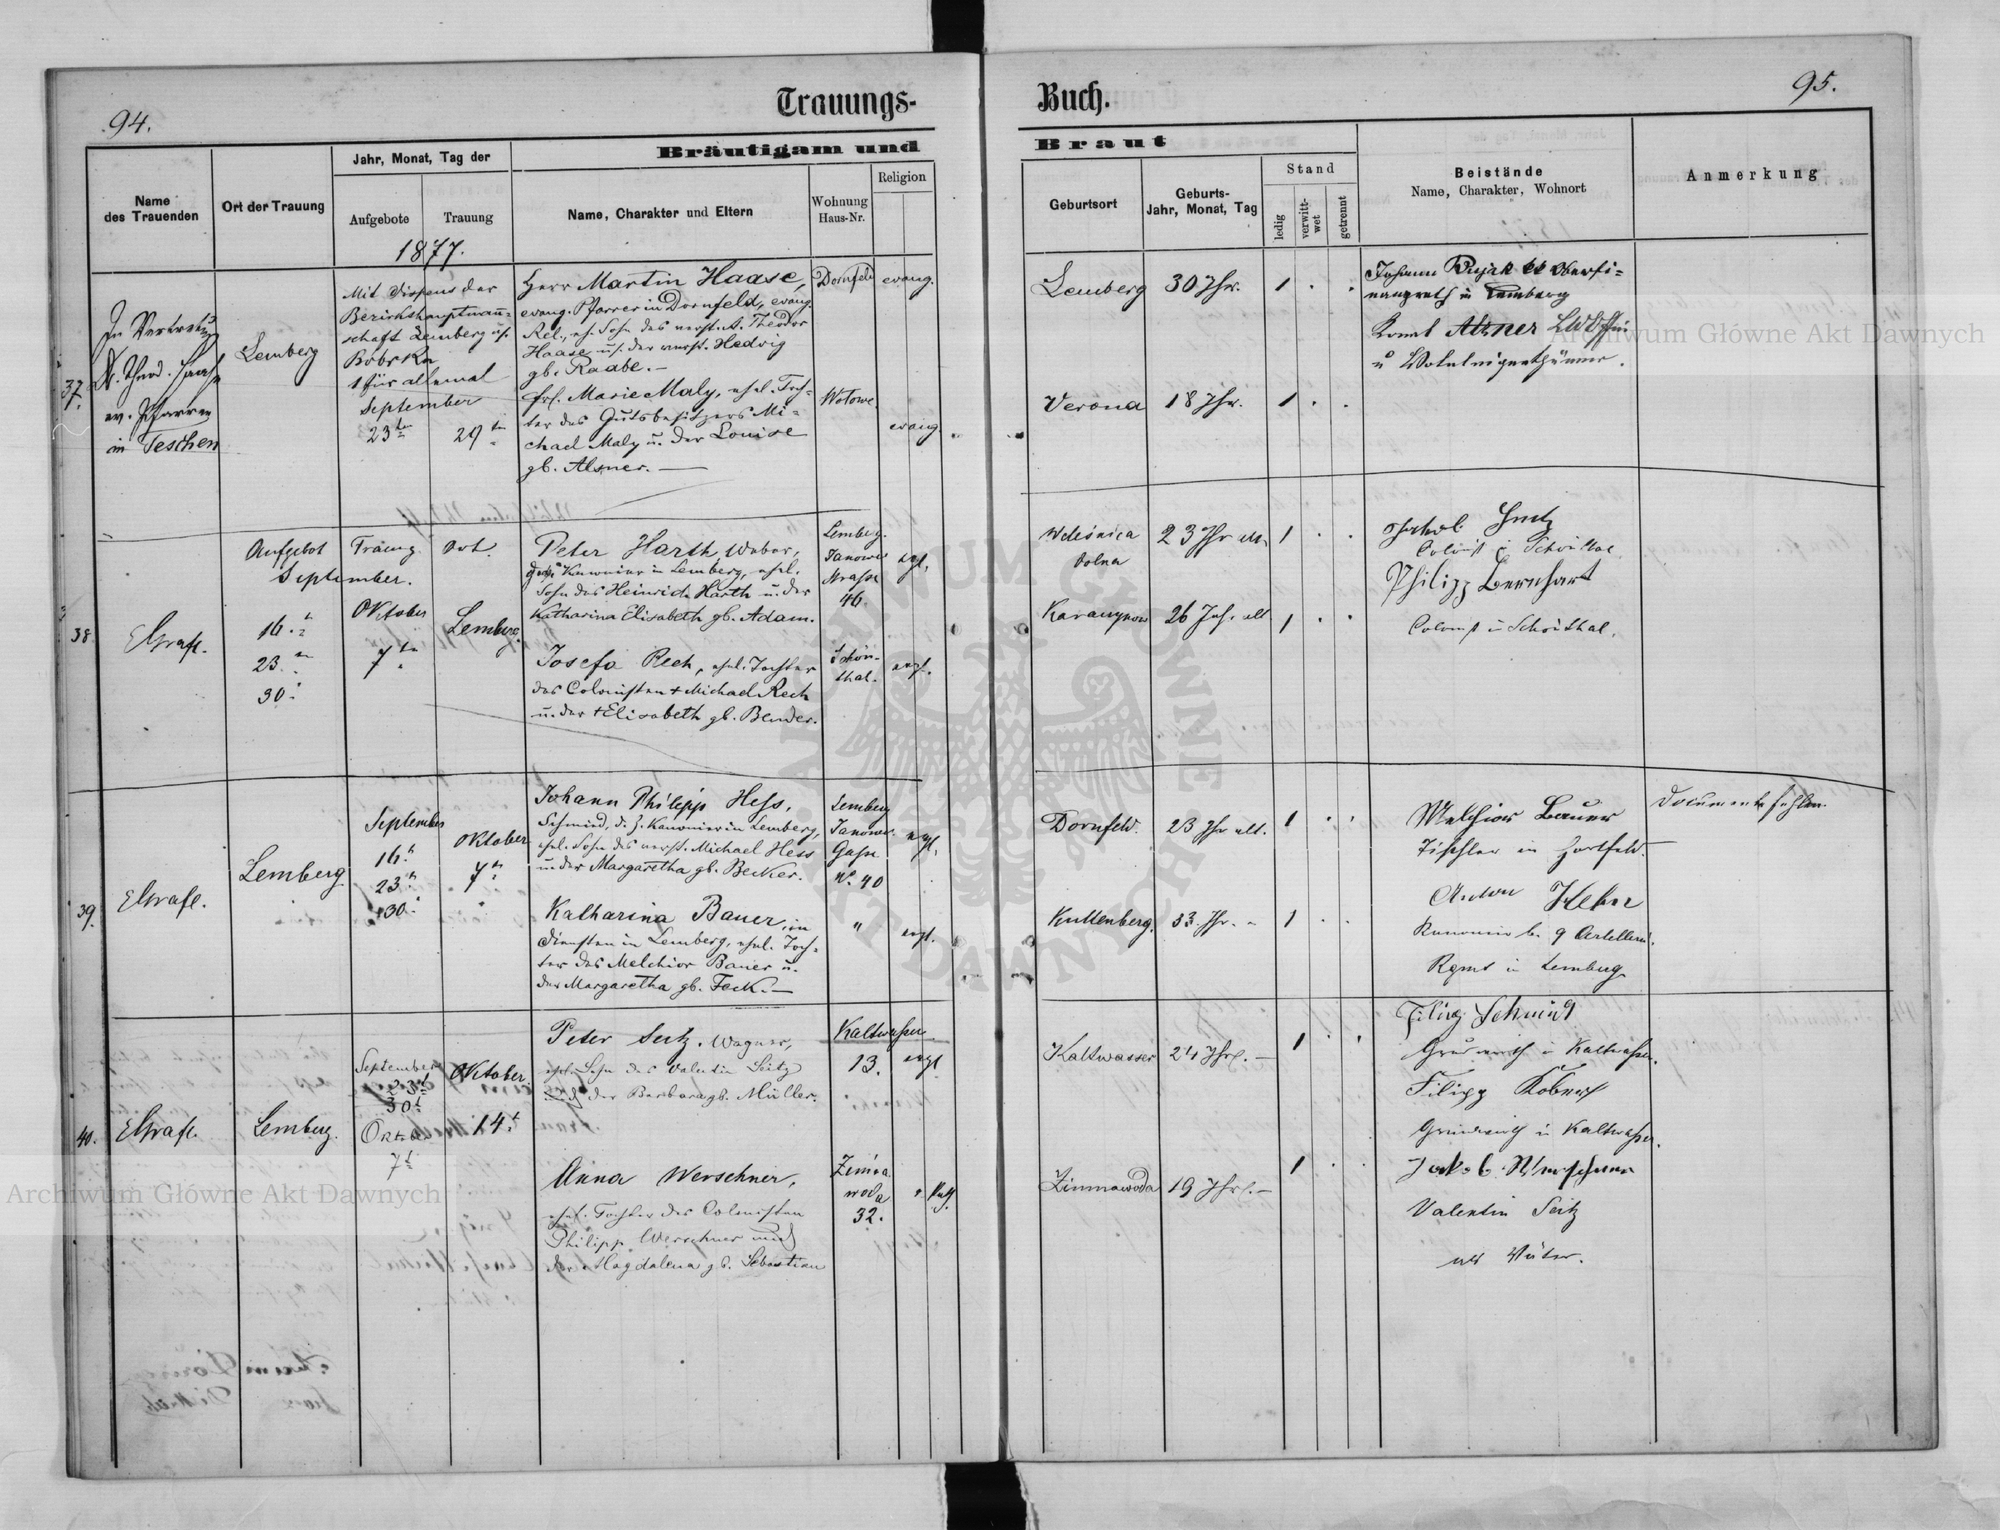 94.
Trauungs-
Buch.
95.
Name
des Trauenden
Ort der Trauung
Jahr, Monat, Tag der
Aufgebote
Trauung
Bräutigam und
Name, Charakter und Eltern
Wohnung
Haus-Nr.
Religion
Braut
Geburtsort
Geburts-
Jahr, Monat, Tag
Stand
ledig
verwitt-
wet
getrennt
Beistände
Name, Charakter, Wohnort
Anmerkung
1877.
37.
In Vertretung
Dr. Theod. Haase
ev. Pfarrer
in Teschen
Lemberg
Mit Dispens der
Bezirkshauptmann-
schaft Lemberg u.
Bobrka
1 für allemal
September
23
29
Herr Martin Haase,
evang. Pfarrer in Dornfeld, evang.
Rel., eh. Sohn des verst. Theodor
Haase u. der verst. Hedwig
gb. Raabe.
Frl. Marie Maly, ehel. Toch-
ter des Gutsbesitzers Mi-
chael Maly u. der Louise
gb. Alsner.
Dornfeld
evang.
Wolowe
evang.
Lemberg
30 Jhr.
1 . .
Verona
18 Jhr.
1 . .
Johann Oberfi-
nanzrath in Lemberg
Alsner
u
38
Aufgebot
Trauung
Ort.
September.
16.
23.
30.
Oktober
7
Lemberg.
Peter Harth, Weber,
Kanonier in Lemberg, ehel.
Sohn des Heinrich Harth u. der
Katharina Elisabeth gb. Adam.
Josefa Rech, ehel. Tochter
des Colonisten + Michael Rech
u. der + Elisabeth gb. Bender.
Lemberg.
Janower
Strasse
46.
Schön-
thal.
evgl.
evgl.
Weleśnica
Polna
23 Jhr alt
1 . .
26 Jah. alt
1 . .
Colonist in Schönthal.
Philipp Bernhart
Colonist in Schönthal.
39.
Lemberg
September
16.
23.
30.
Oktober
7
Johann Philipp Hess,
Schmied, d. Z. Kanonier in Lemberg,
ehel. Sohn des verst. Michael Hess
u. der Margaretha gb. Becker.
Katharina Bauer, in
Diensten in Lemberg, ehel. Toch-
ter des Melchior Bauer u.
der Margaretha gb. Feck.
Lemberg
Janower
Gasse
N. 40
"
evgl.
evgl.
Dornfeld.
23 Jhr alt.
1 . .
Kuttenberg.
33. Jhr. "
1 . .
Melchior Bauer
Tischler in Hartfeld.
Anton Hehn
Kanonier b. 9 Artillerie
Rgmt in Lemberg
Documente fehlen.
40.
Lemberg.
September
23
30
Oktober
7
Oktober
14.
Peter Seitz, Wagner,
ehel. Sohn des Valentin Seitz
und der Barbara gb. Müller.
Anna Werschner,
ehel. Tochter des Colonisten
Philipp Werschner und
der Magdalena gb. Sebastian
Kaltwasser.
13.
evgl
Zimna
woda
32.
Kaltwasser
24 Jhr.
1 . .
Zimnawoda
19 Jhr.
1 . .
Filipp Schmidt
Grundwirth in Kaltwasser.
Filipp Kobers
Grundwirth in Kaltwasser.
Jakob Werschner
Valentin Seitz
als Väter.
Archiwum Główne Akt Dawnych
Archiwum Główne Akt Dawnych
ARCHIWUM GŁÓWNE AKT DAWNYCH